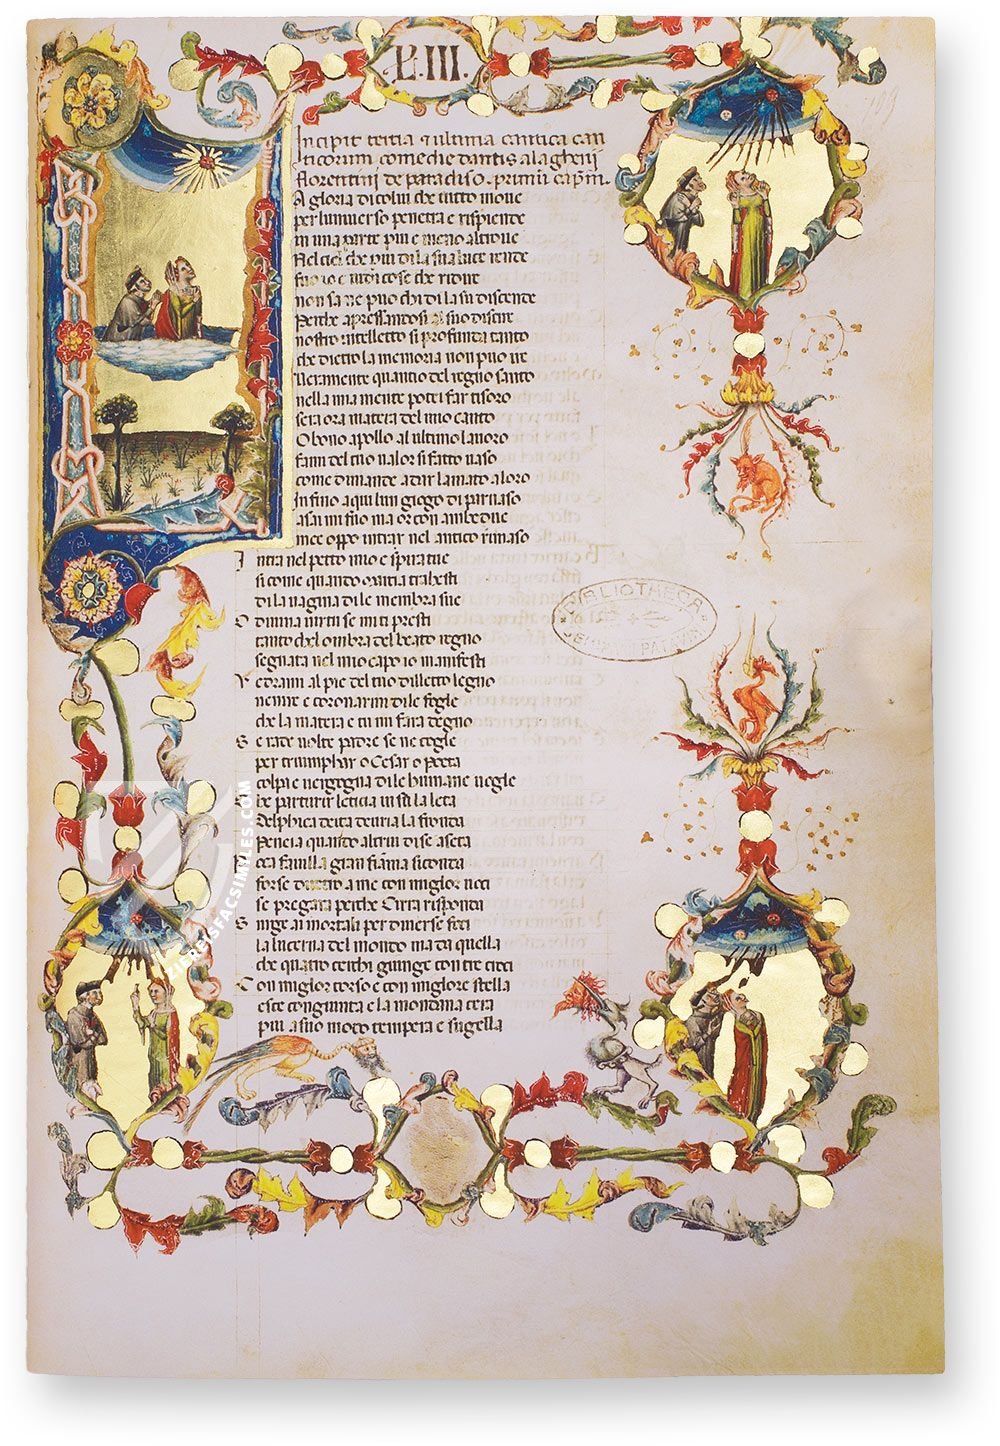 L. III.
Incipit tertia & ultima cantica can
ticorum comedie dantis alagherij
florentini de paradiso. primũ cap̃m.
A gloria di colui che tutto move
per luniverso penetra e risplende
in una parte piu e meno altrove
Nel ciel che piu di la sua luce prende
fu io e vidi cose che ridire
non sa ne puo chi di la su discende
Perche apressandosi al suo disire
nostro intelletto si profunda tanto
che dietro la memoria non puo ire
Veramente quantio del regno santo
nella mia mente potei far tesoro
sera ora matera del mio canto
O bono apollo al ultimo lavoro
fami del tuo valor si fatto vaso
come dimande a dar lamato aloro
Infino a qui lun giogo di parnaso
assai mi fu ma or con ambedue
mce oppo intrar nel antico rimaso
Intra nel petto mio e spira tue
si come quando marsia trahesti
di la vagina di le membra sue
O divina virtu se mi ti presti
tanto che lombra del beato regno
segnata nel mio capo io manifesti
Vedrami al pie del tuo diletto legno
venire e coronarmi di le foglie
che la matera e tu mi fara degno
Se rade volte padre se ne coglie
per triumphar o Cesar o Poeta
colpa e vergogna di le humane voglie
he parturir leticia in su la leta
delphica deita devria la fronda
Peneia quando altrui di se aseta
Poca favilla gran fiama siconda
forse dietro a me con miglor voci
se pregara perche Cirra risponda
Surge ai mortali per diverse foci
la lucerna del mondo ma da quella
che quatro cerchi giunge con tre croci
Con miglor corso e con miglore stella
esce congiunta e la mondana cera
piu a suo modo tempera e sugella
BIBLIOTHECA
SEMINARII PATAVINI
ZIEREISFACSIMILES.COM